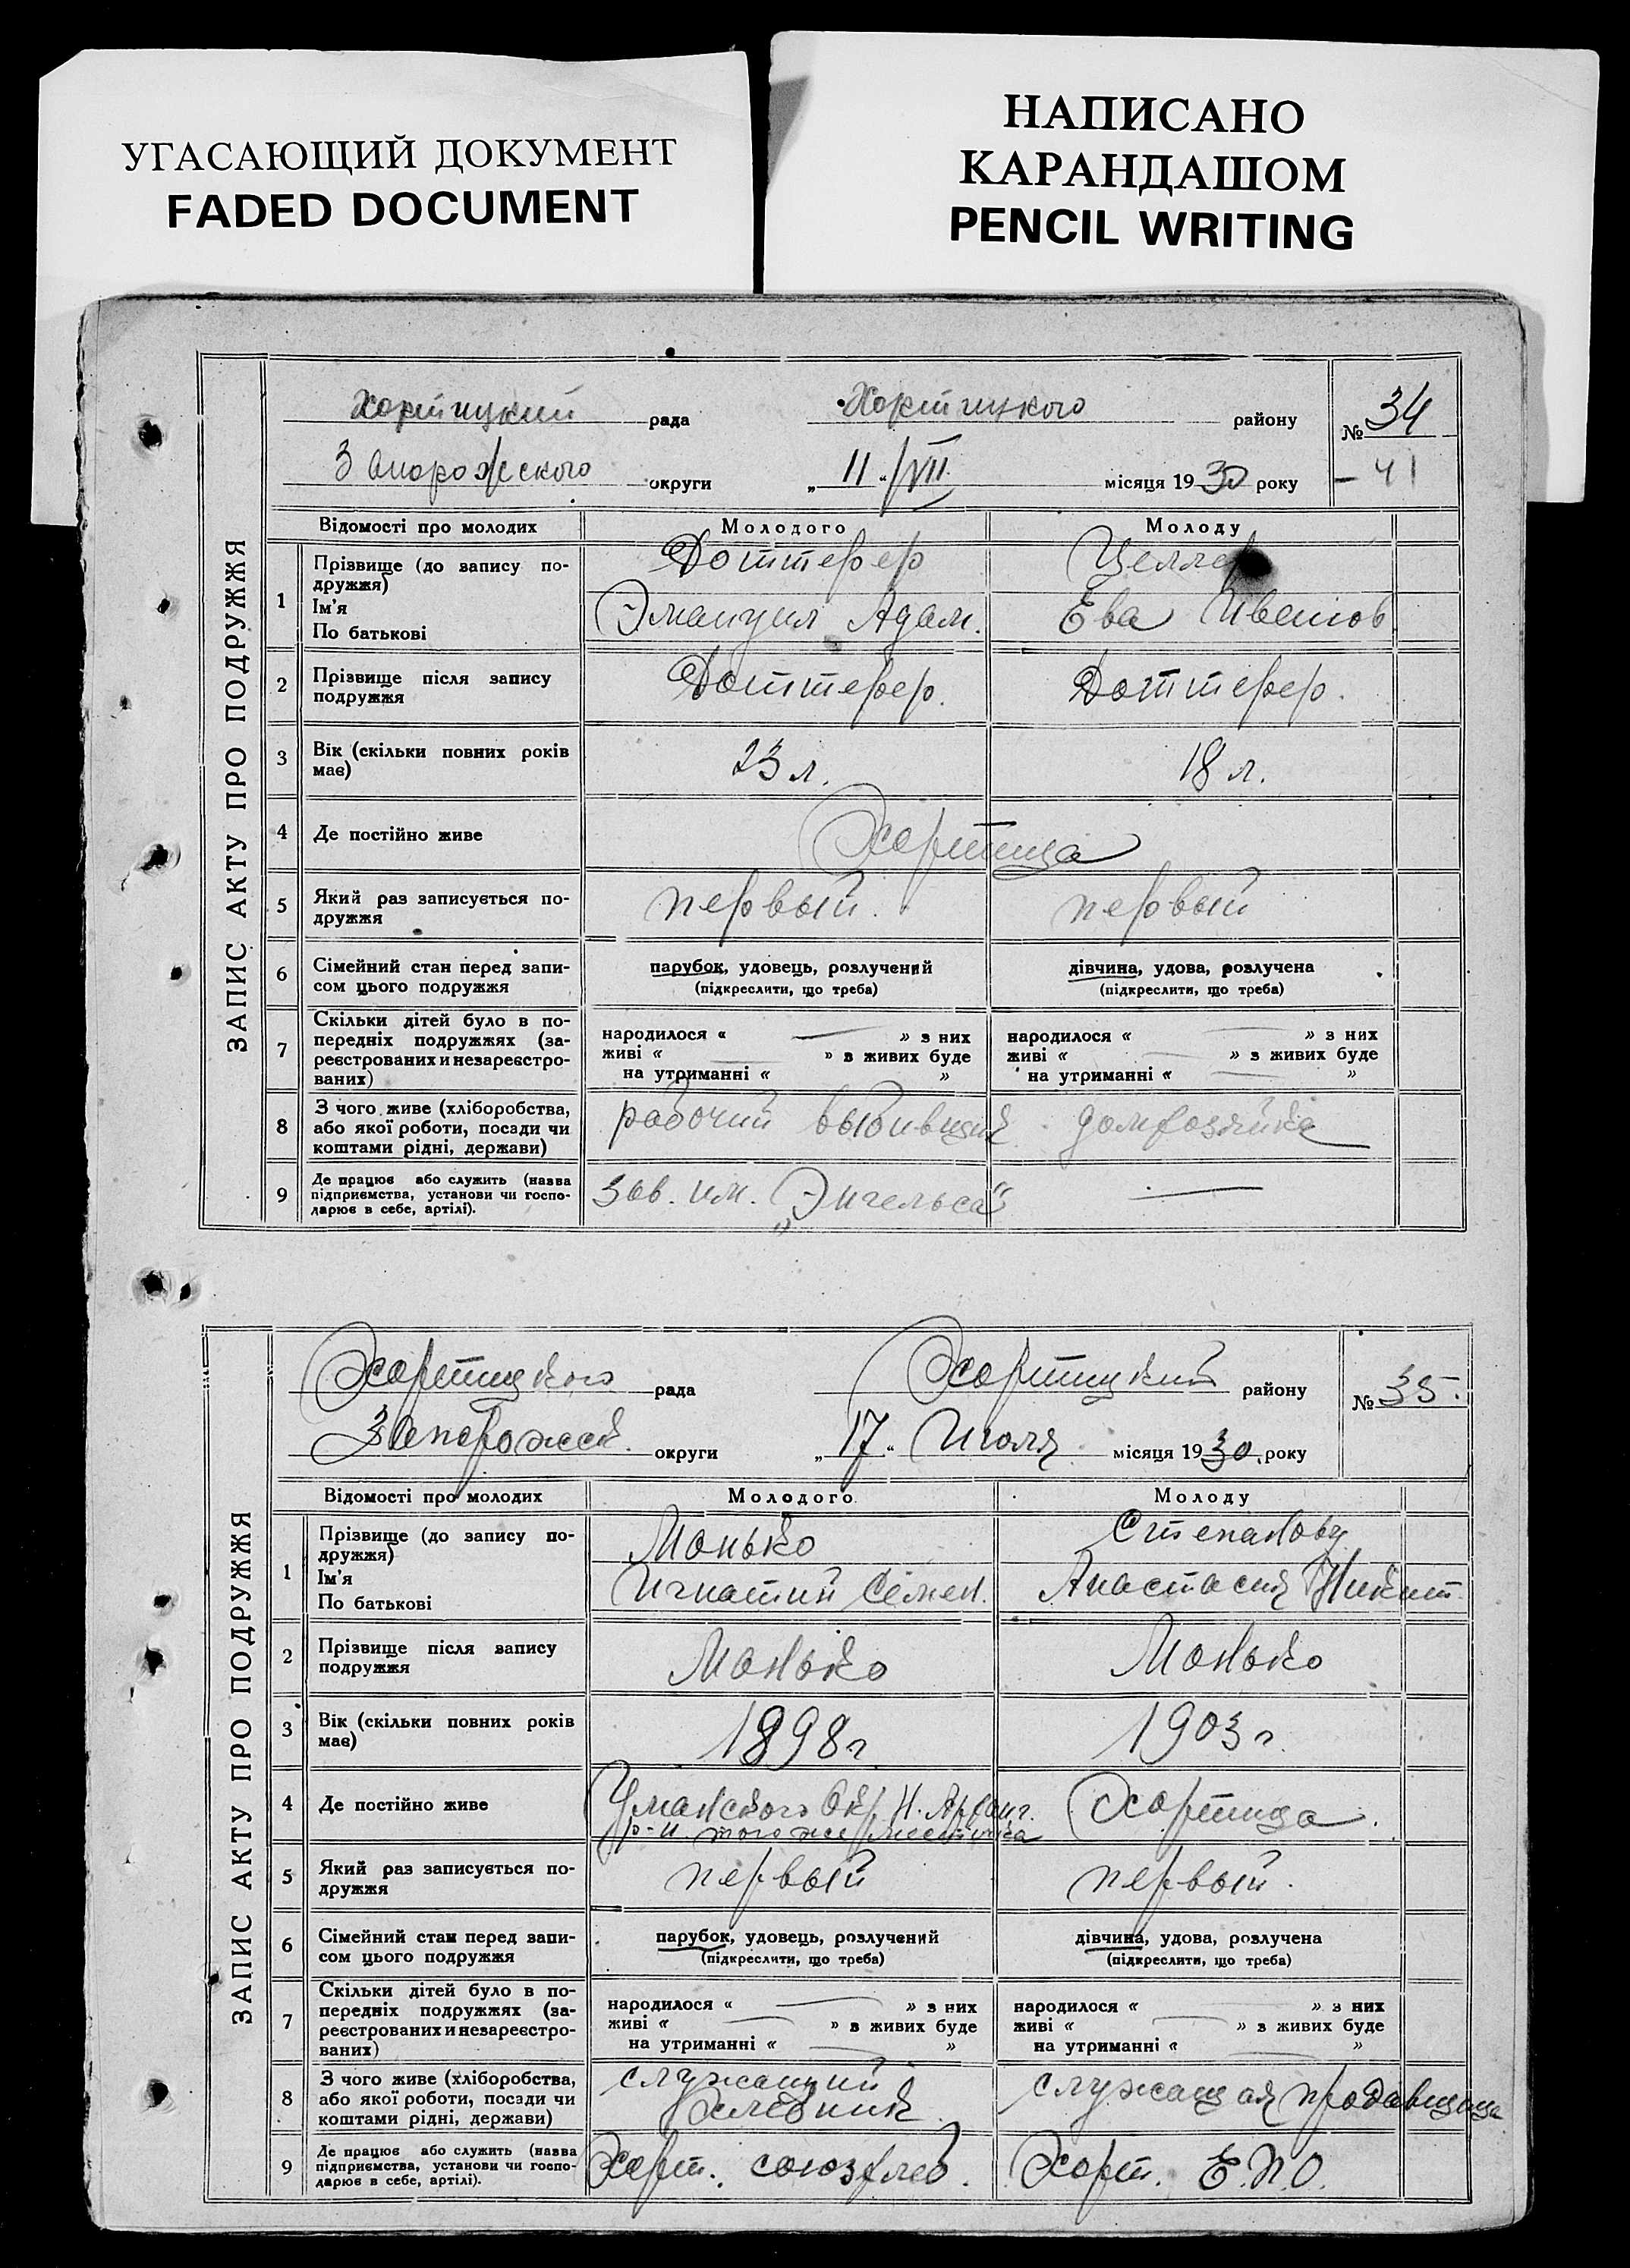 УГАСАЮЩИЙ ДОКУМЕНТ
FADED DOCUMENT
НАПИСАНО
КАРАНДАШОМ
PENCIL WRITING
ЗАПИС АКТУ ПРО ПОДРУЖЖЯ
Хортицкий рада Хортицкого району № 34
Запорожского округи „11“/VII місяця 1930 року – 41
Відомості про молодих Молодого Молоду
1 Прізвище (до запису по-
дружжя)
Ім'я
По батькові
Доттерер Целлер
Эмануил Адам. Ева Иванов
2 Прізвище після запису
подружжя
Доттерер. Доттерер.
3 Вік (скільки повних років
має)
23 л. 18 л.
4 Де постійно живе Хортица
5 Який раз записується по-
дружжя
первый. первый
6 Сімейний стан перед запи-
сом цього подружжя
парубок, удовець, розлучений
(підкреслити, що треба)
дівчина, удова, розлучена
(підкреслити, що треба)
7 Скільки дітей було в по-
передніх подружжях (за-
реєстрованих и незареєстро-
ваних)
народилося « — » з них
живі « — » з живих буде
на утриманні « »
народилося « — » з них
живі « — » з живих буде
на утриманні « — »
8 З чого живе (хліборобства,
або якої роботи, посади чи
коштами рідні, держави)
рабочий выбивщик домхозяйка
9 Де працює або служить (назва
підприємства, установи чи госпо-
дарює в себе, артілі).
зав. им. „Энгельса“ —
ЗАПИС АКТУ ПРО ПОДРУЖЖЯ
Хортицкого рада Хортицкий району № 35.
Запорожск. округи „17“ Июля місяця 1930 року
Відомості про молодих Молодого Молоду
1 Прізвище (до запису по-
дружжя)
Ім'я
По батькові
Монько Степанову
Игнатий Семен. Анастасия Никит.
2 Прізвище після запису
подружжя
Монько Монько
3 Вік (скільки повних років
має)
1898г 1903г.
4 Де постійно живе
Уманского Окр. Н. Арханг.
р-н. того же местечка
Хортица.
5 Який раз записується по-
дружжя
первый первый.
6 Сімейний стан перед запи-
сом цього подружжя
парубок, удовець, розлучений
(підкреслити, що треба)
дівчина, удова, розлучена
(підкреслити, що треба)
7 Скільки дітей було в по-
передніх подружжях (за-
реєстрованих и незареєстро-
ваних)
народилося « — » з них
живі « — » з живих буде
на утриманні « — »
народилося « — » з них
живі « — » з живих буде
на утриманні « — »
8 З чого живе (хліборобства,
або якої роботи, посади чи
коштами рідні, держави)
служащий
служащая продавщица
9 Де працює або служить (назва
підприємства, установи чи госпо-
дарює в себе, артілі).
Хорт. союзхлеб. Хорт. Е.П.О.